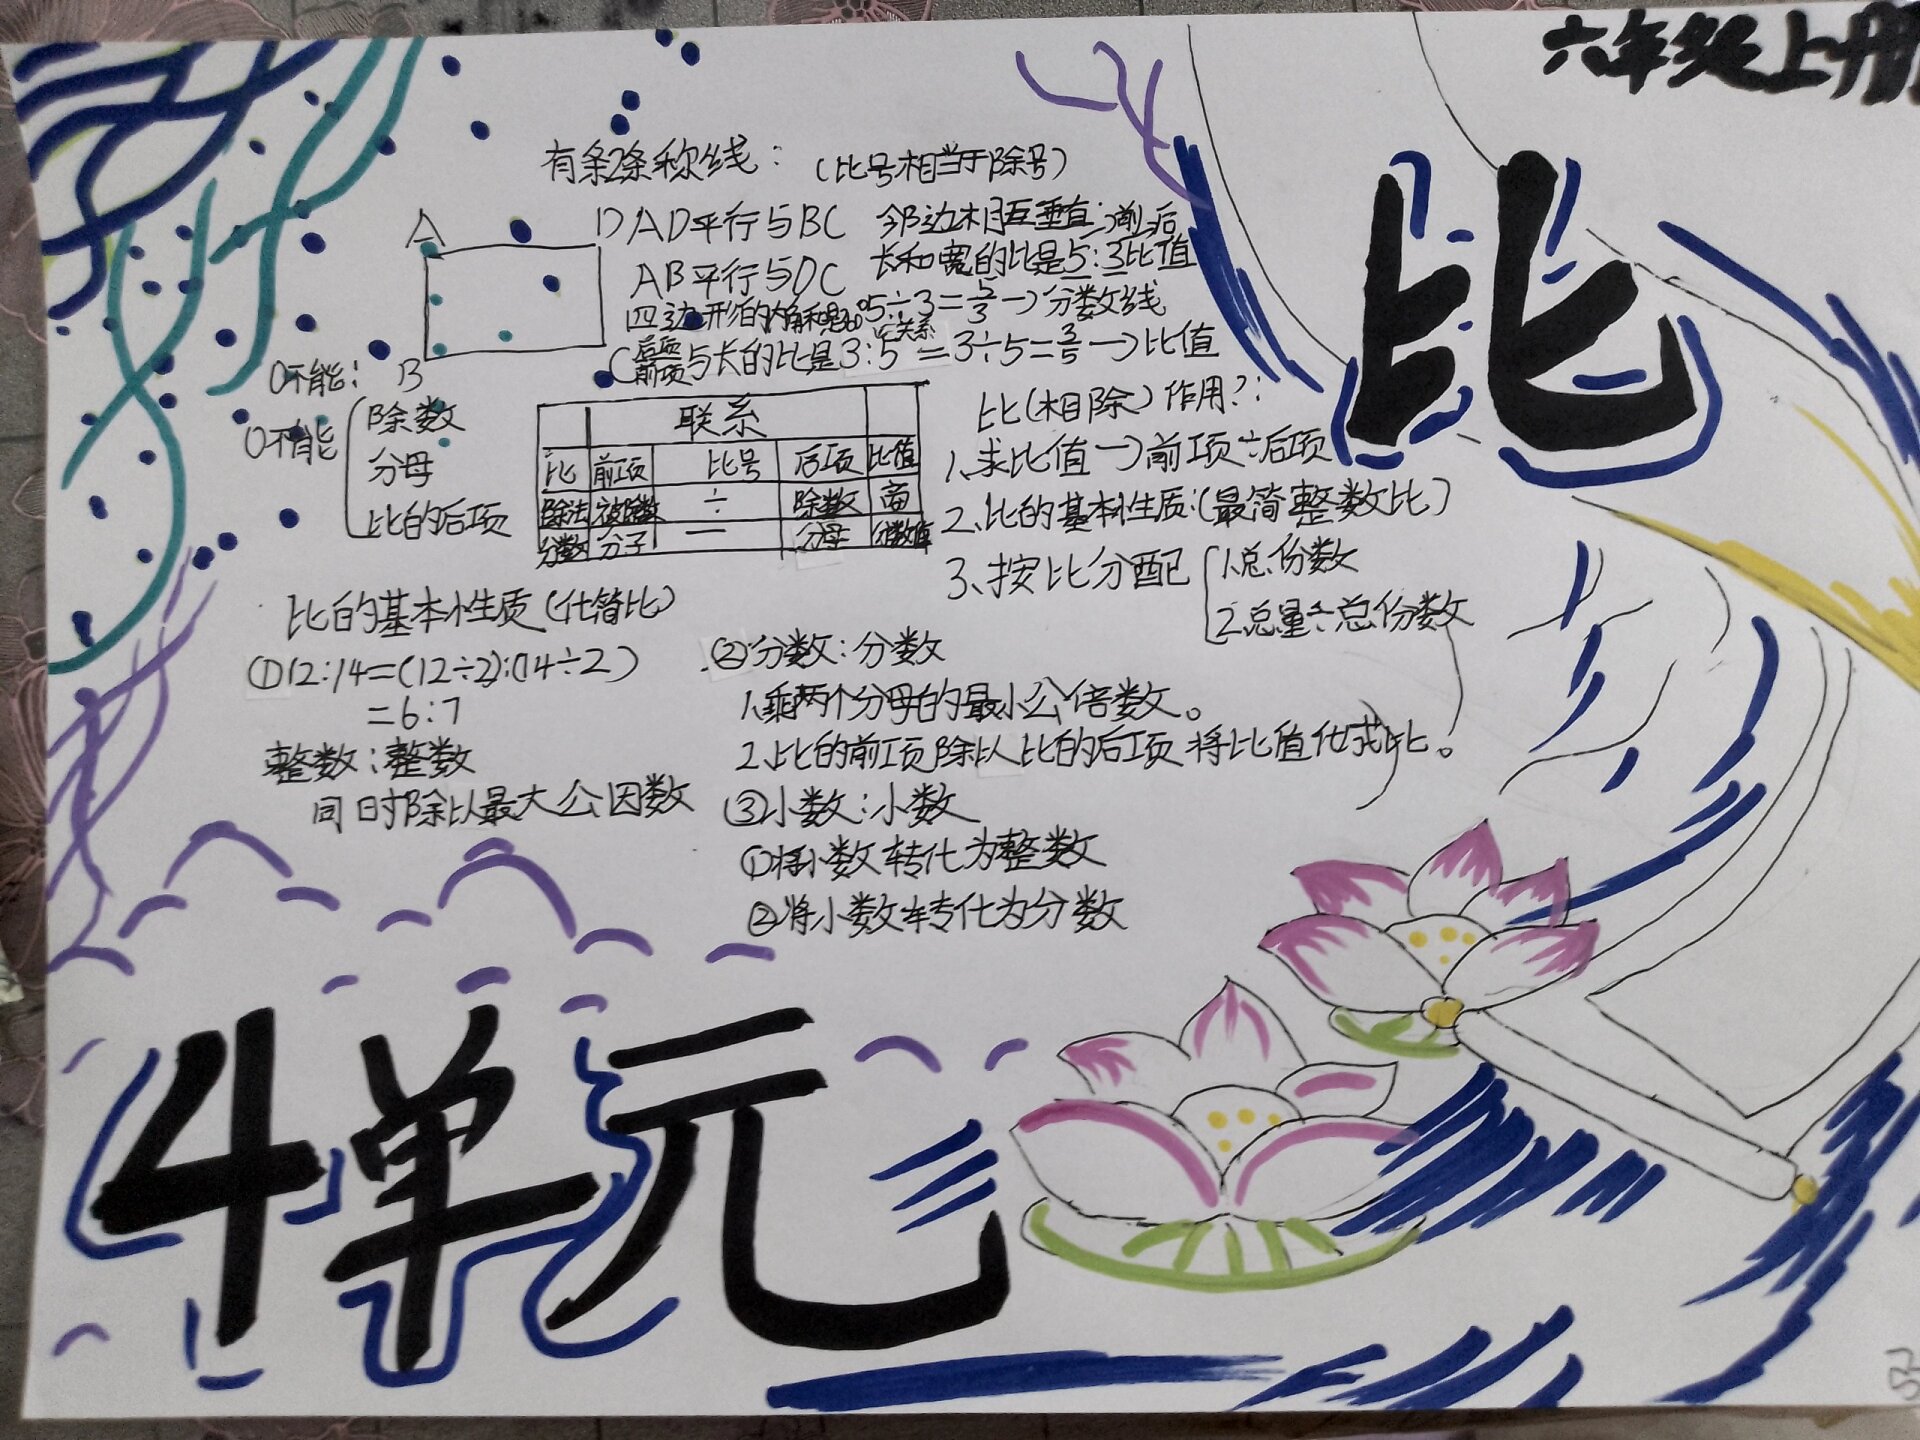 六年级上册
比
有条2条称线：（比号相当于除号）
A
D AD平行与BC
AB平行与DC
邻边相互垂直
长和宽的比是5:3比值
5÷3=5/3→分数线
四边形的内角和是360°
B
C
后项
前项
与长的比是3:5=3÷5=3/5→比值
关系
0不能：
0不能
除数
分母
比的后项
联系
比 前项 比号 后项 比值
除法 被除数 ÷ 除数 商
分数 分子 — 分母 分数值
比（相除）作用?：
1、求比值→前项÷后项
2、比的基本性质：（最简整数比）
3、按比分配
1.总份数
2.总量÷总份数
比的基本性质（化简比）
①12:14=(12÷2):(14÷2)
=6:7
整数：整数
同时除以最大公因数
②分数：分数
1、乘两个分母的最小公倍数。
2、比的前项除以比的后项将比值化成比。
③小数：小数
①将小数转化为整数
②将小数转化为分数
4单元